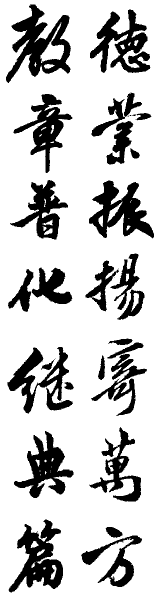 德業振揚寄萬方
教章普化継典篇